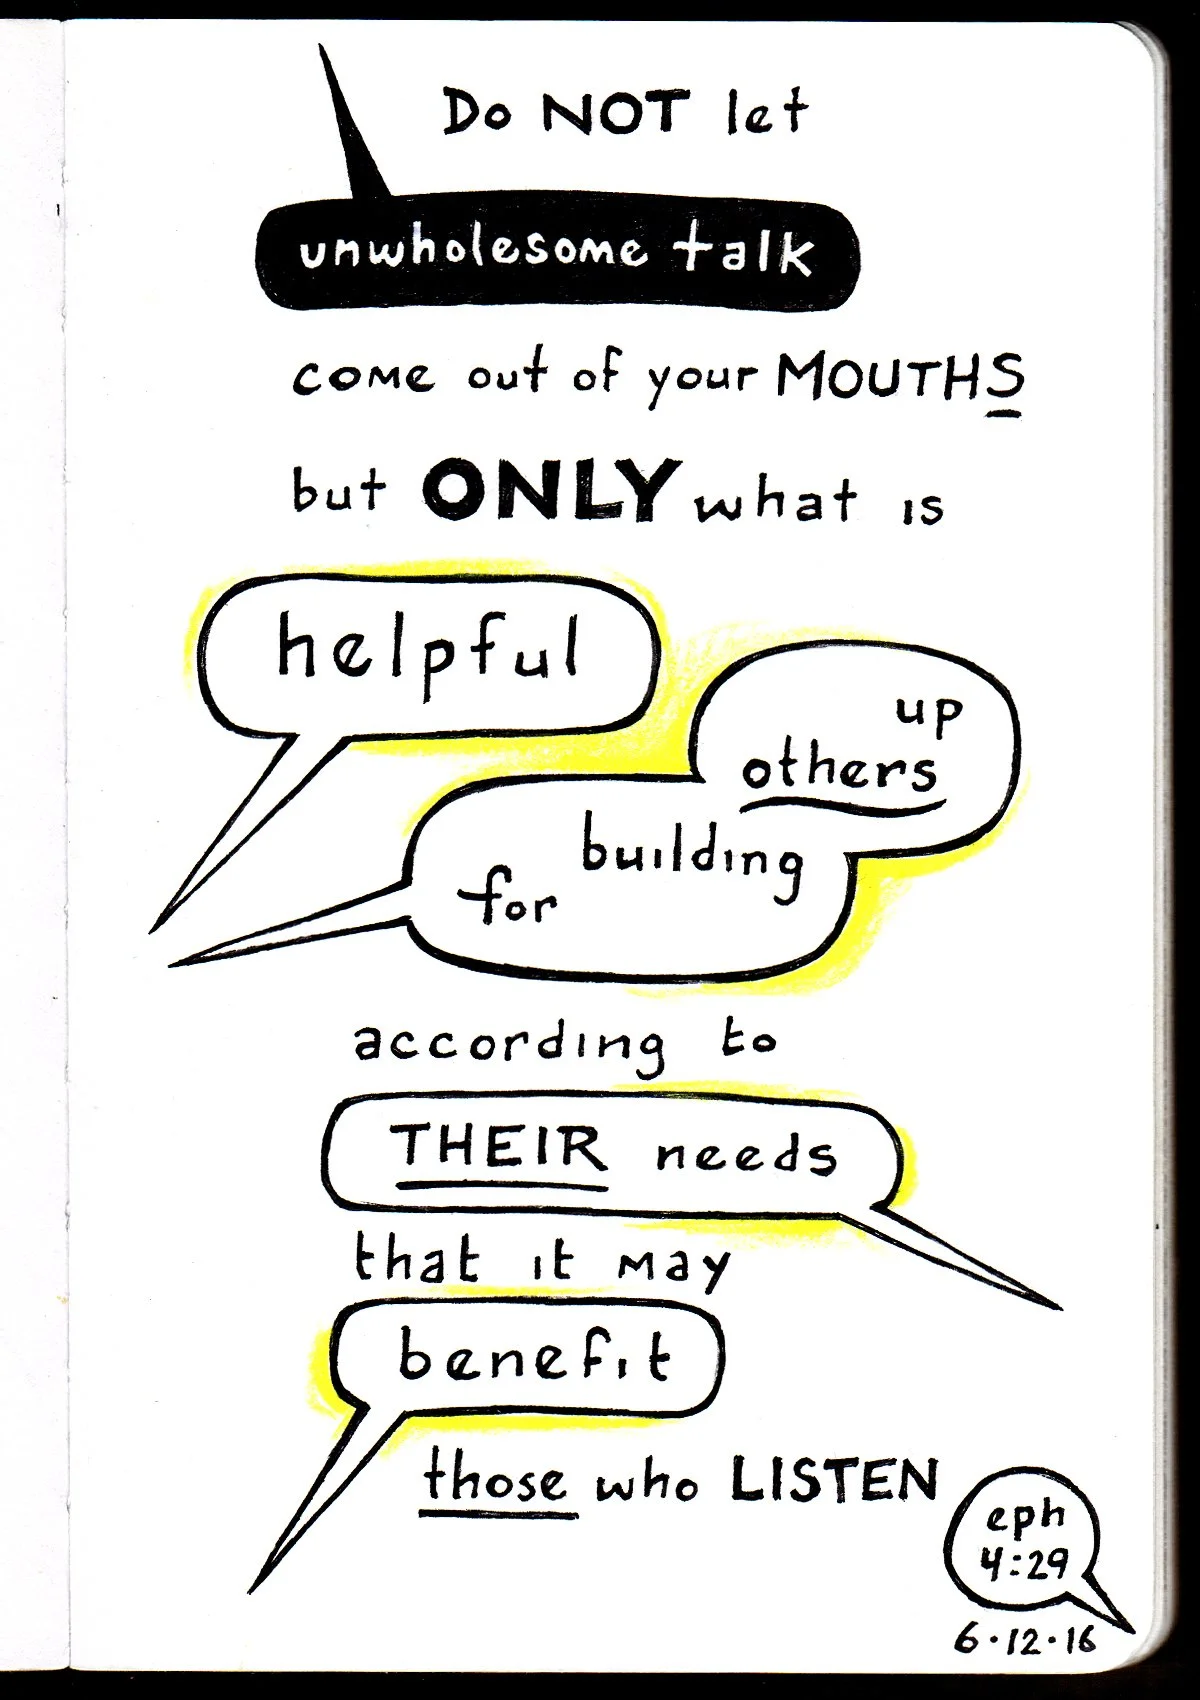 Do NOT let
unwholesome talk
come out of your MOUTHS
but ONLY what is
helpful
for
building
others
up
according to
THEIR needs
that it may
benefit
those who LISTEN
eph
4:29
6·12·16